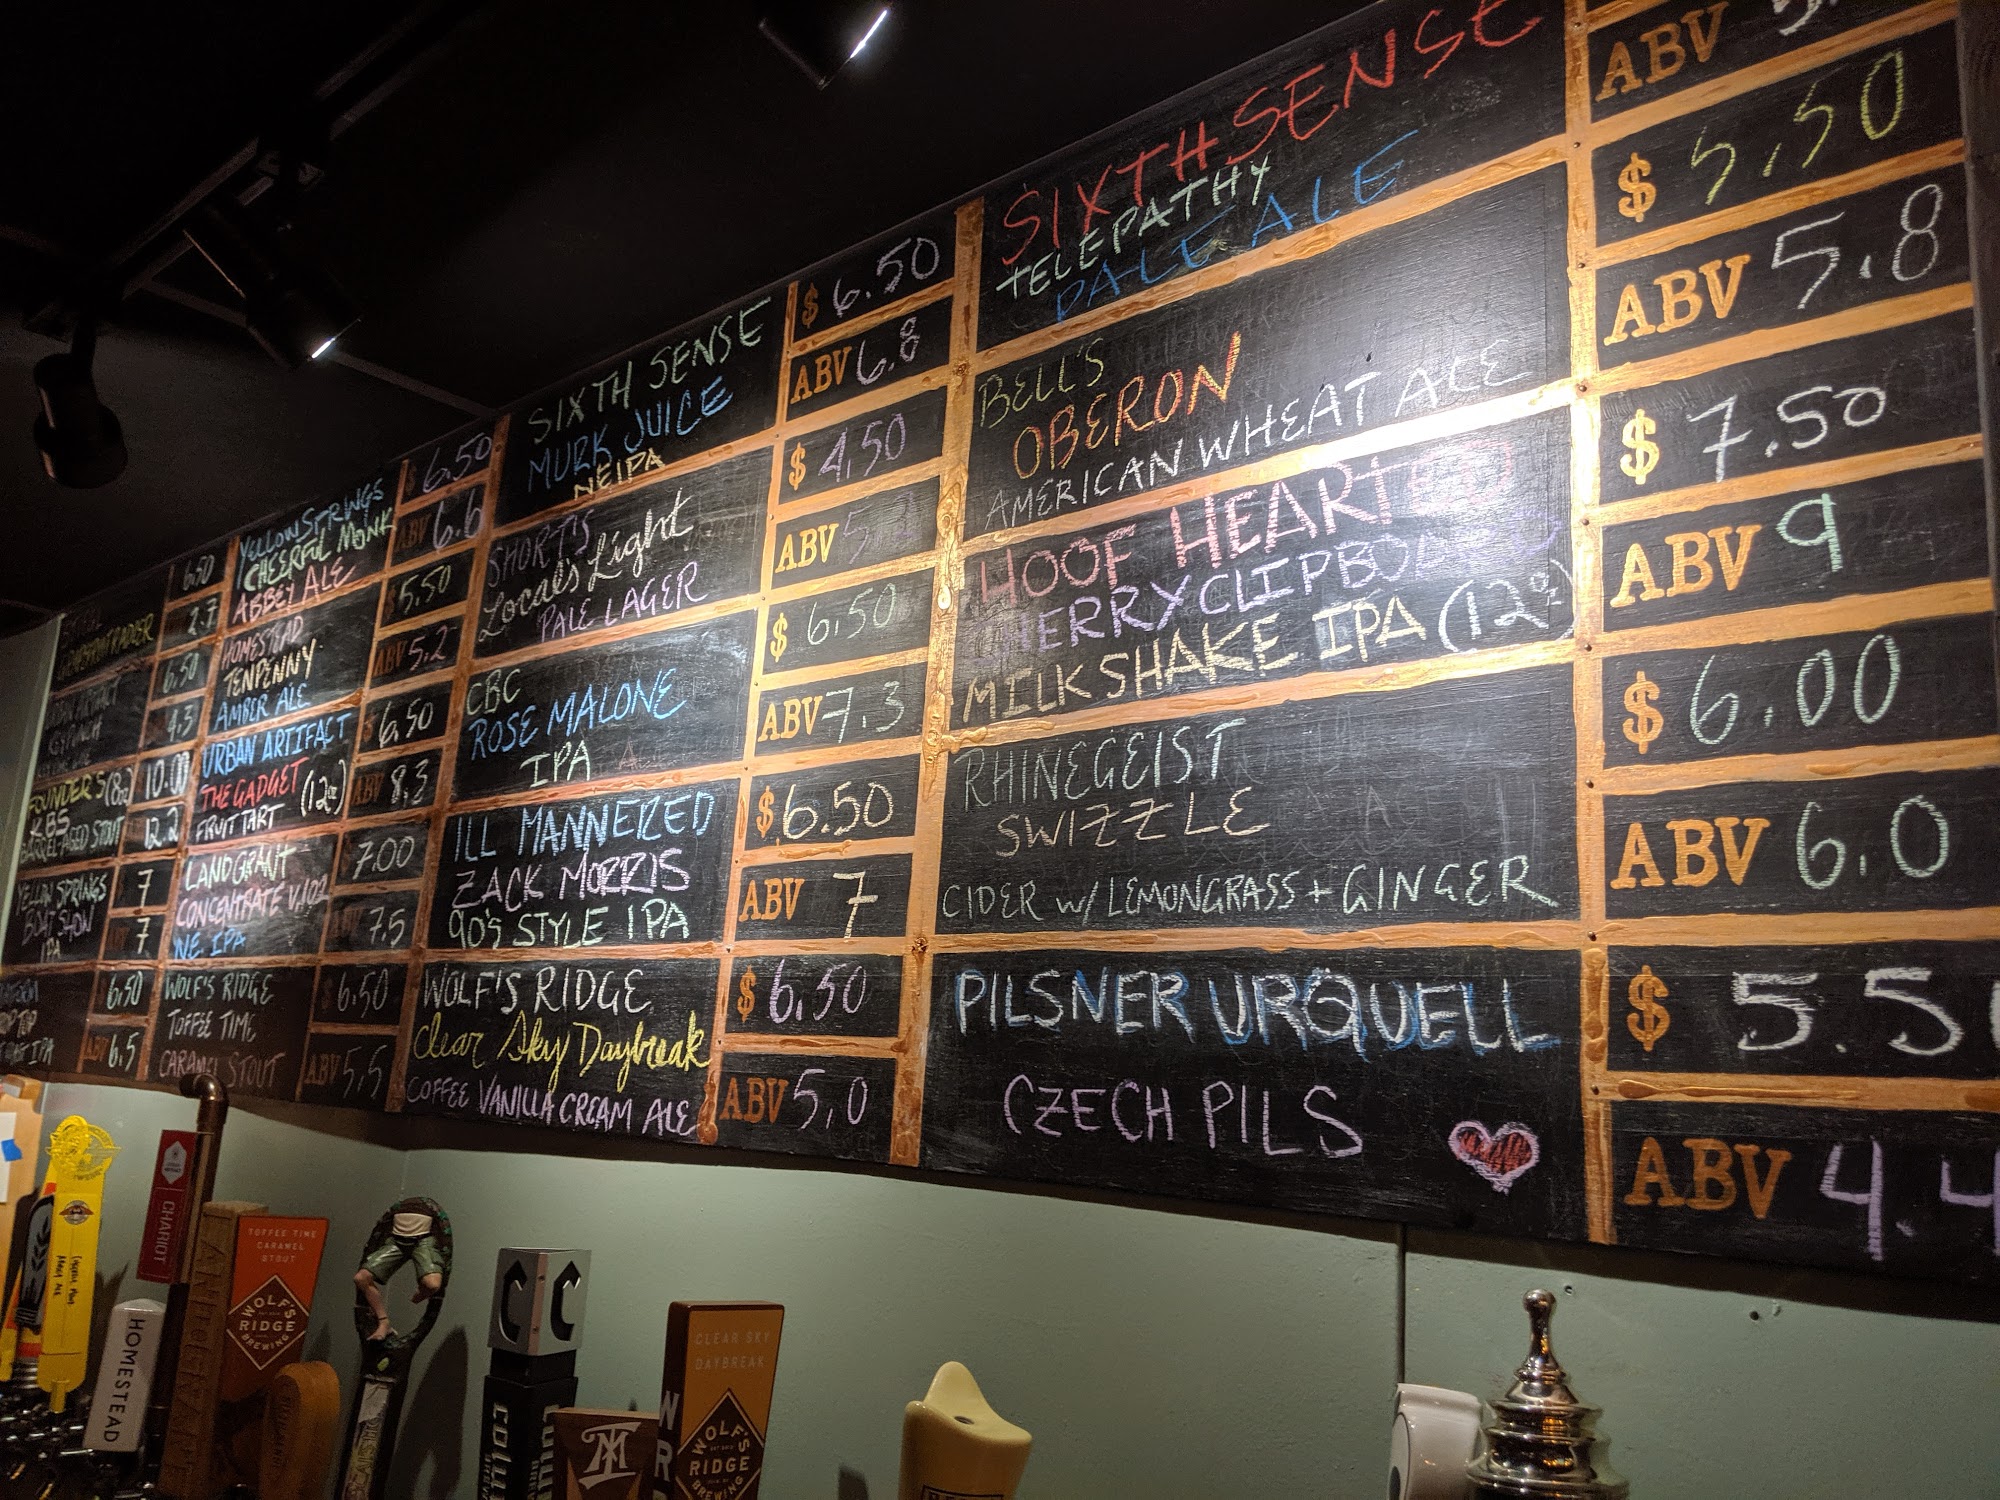 6.50
2.7
6.50
4.3
FOUNDER'S (8oz)
KBS
BARREL-AGED STOUT
10.00
12.2
YELLOW SPRINGS
BOAT SHOW
IPA
7
7
IPA
6.50
ABV 6.5
YELLOW SPRINGS
CHEERFUL MONK
ABBEY ALE
$ 6.50
ABV 6.6
HOMESTEAD
TENPENNY
AMBER ALE
$ 5.50
ABV 5.2
URBAN ARTIFACT
THE GADGET
FRUIT TART (12oz)
$ 6.50
ABV 8.3
LAND GRANT
CONCENTRATE V.102
NE IPA
7.00
7.5
WOLF'S RIDGE
TOFFEE TIME
CARAMEL STOUT
$ 6.50
ABV 5.5
SIXTH SENSE
MURK JUICE
NEIPA
$ 6.50
ABV 6.8
SHORT'S
Local's Light
PALE LAGER
$ 4.50
ABV 5.2
CBC
ROSE MALONE
IPA
$ 6.50
ABV 7.3
ILL MANNERED
ZACK MORRIS
90's STYLE IPA
$ 6.50
ABV 7
WOLF'S RIDGE
Clear Sky Daybreak
COFFEE VANILLA CREAM ALE
$ 6.50
ABV 5.0
SIXTH SENSE
TELEPATHY
PALE ALE
ABV 5.
BELL'S
OBERON
AMERICAN WHEAT ALE
$ 5.50
ABV 5.8
HOOF HEARTED
CHERRY CLIPBOARDS
MILKSHAKE IPA (12oz)
$ 7.50
ABV 9
RHINEGEIST
SWIZZLE
CIDER W/ LEMONGRASS + GINGER
$ 6.00
ABV 6.0
PILSNER URQUELL
CZECH PILS
$ 5.5
ABV 4.4
CHARIOT
HOMESTEAD
ARTIFACT
TOFFEE TIME
CARAMEL
STOUT
WOLF'S
RIDGE
BREWING
CLEAR SKY
DAYBREAK
WOLF'S
RIDGE
BREWING